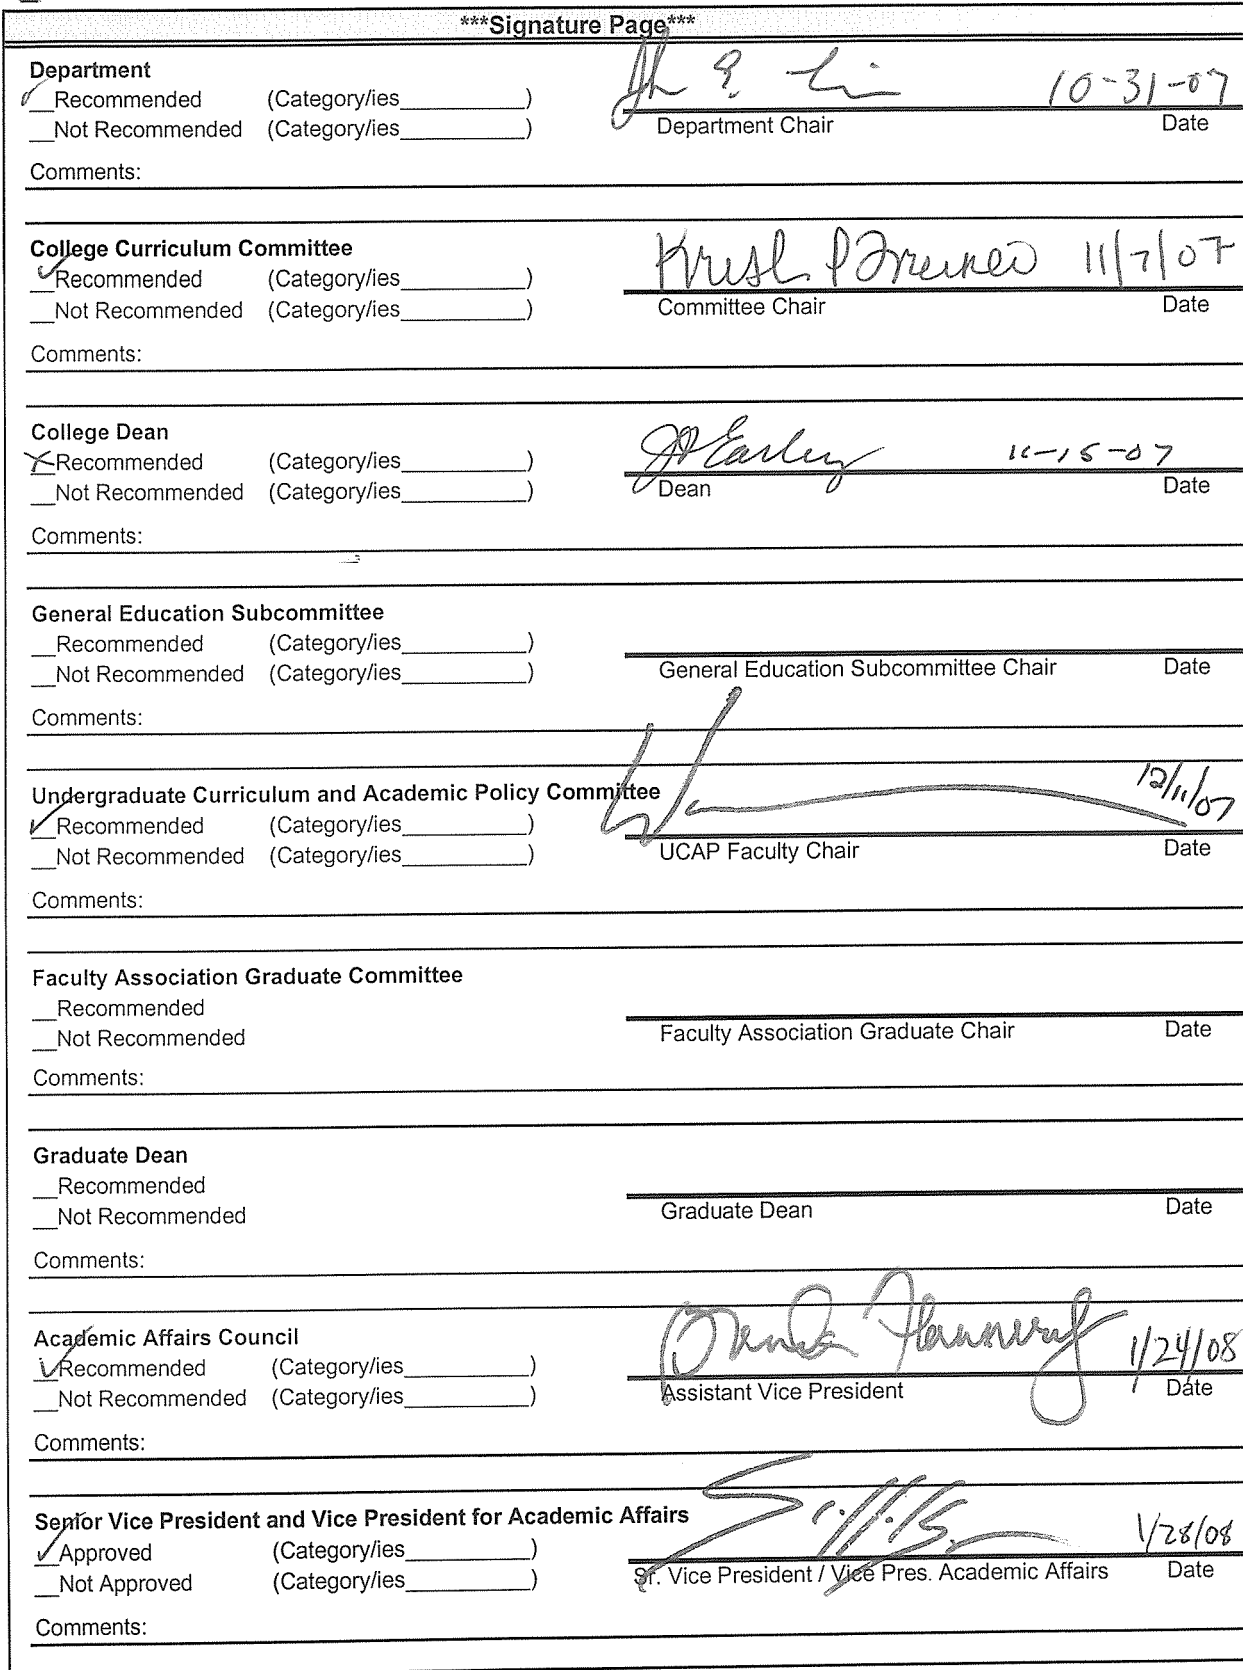 ***Signature Page***
Department
__Recommended (Category/ies________)
10-31-07
__Not Recommended (Category/ies________)
Department Chair Date
Comments:
College Curriculum Committee
11/7/07
__Recommended (Category/ies________)
__Not Recommended (Category/ies________)
Committee Chair Date
Comments:
College Dean
X Recommended (Category/ies________)
JPEarley 11-15-07
__Not Recommended (Category/ies________)
Dean Date
Comments:
General Education Subcommittee
__Recommended (Category/ies________)
__Not Recommended (Category/ies________)
General Education Subcommittee Chair Date
Comments:
Undergraduate Curriculum and Academic Policy Committee
12/11/07
__Recommended (Category/ies________)
__Not Recommended (Category/ies________)
UCAP Faculty Chair Date
Comments:
Faculty Association Graduate Committee
__Recommended
__Not Recommended
Faculty Association Graduate Chair Date
Comments:
Graduate Dean
__Recommended
__Not Recommended
Graduate Dean Date
Comments:
Academic Affairs Council
Flannery 1/24/08
__Recommended (Category/ies________)
__Not Recommended (Category/ies________)
Assistant Vice President Date
Comments:
Senior Vice President and Vice President for Academic Affairs
1/28/08
__Approved (Category/ies________)
__Not Approved (Category/ies________)
Sr. Vice President / Vice Pres. Academic Affairs Date
Comments: